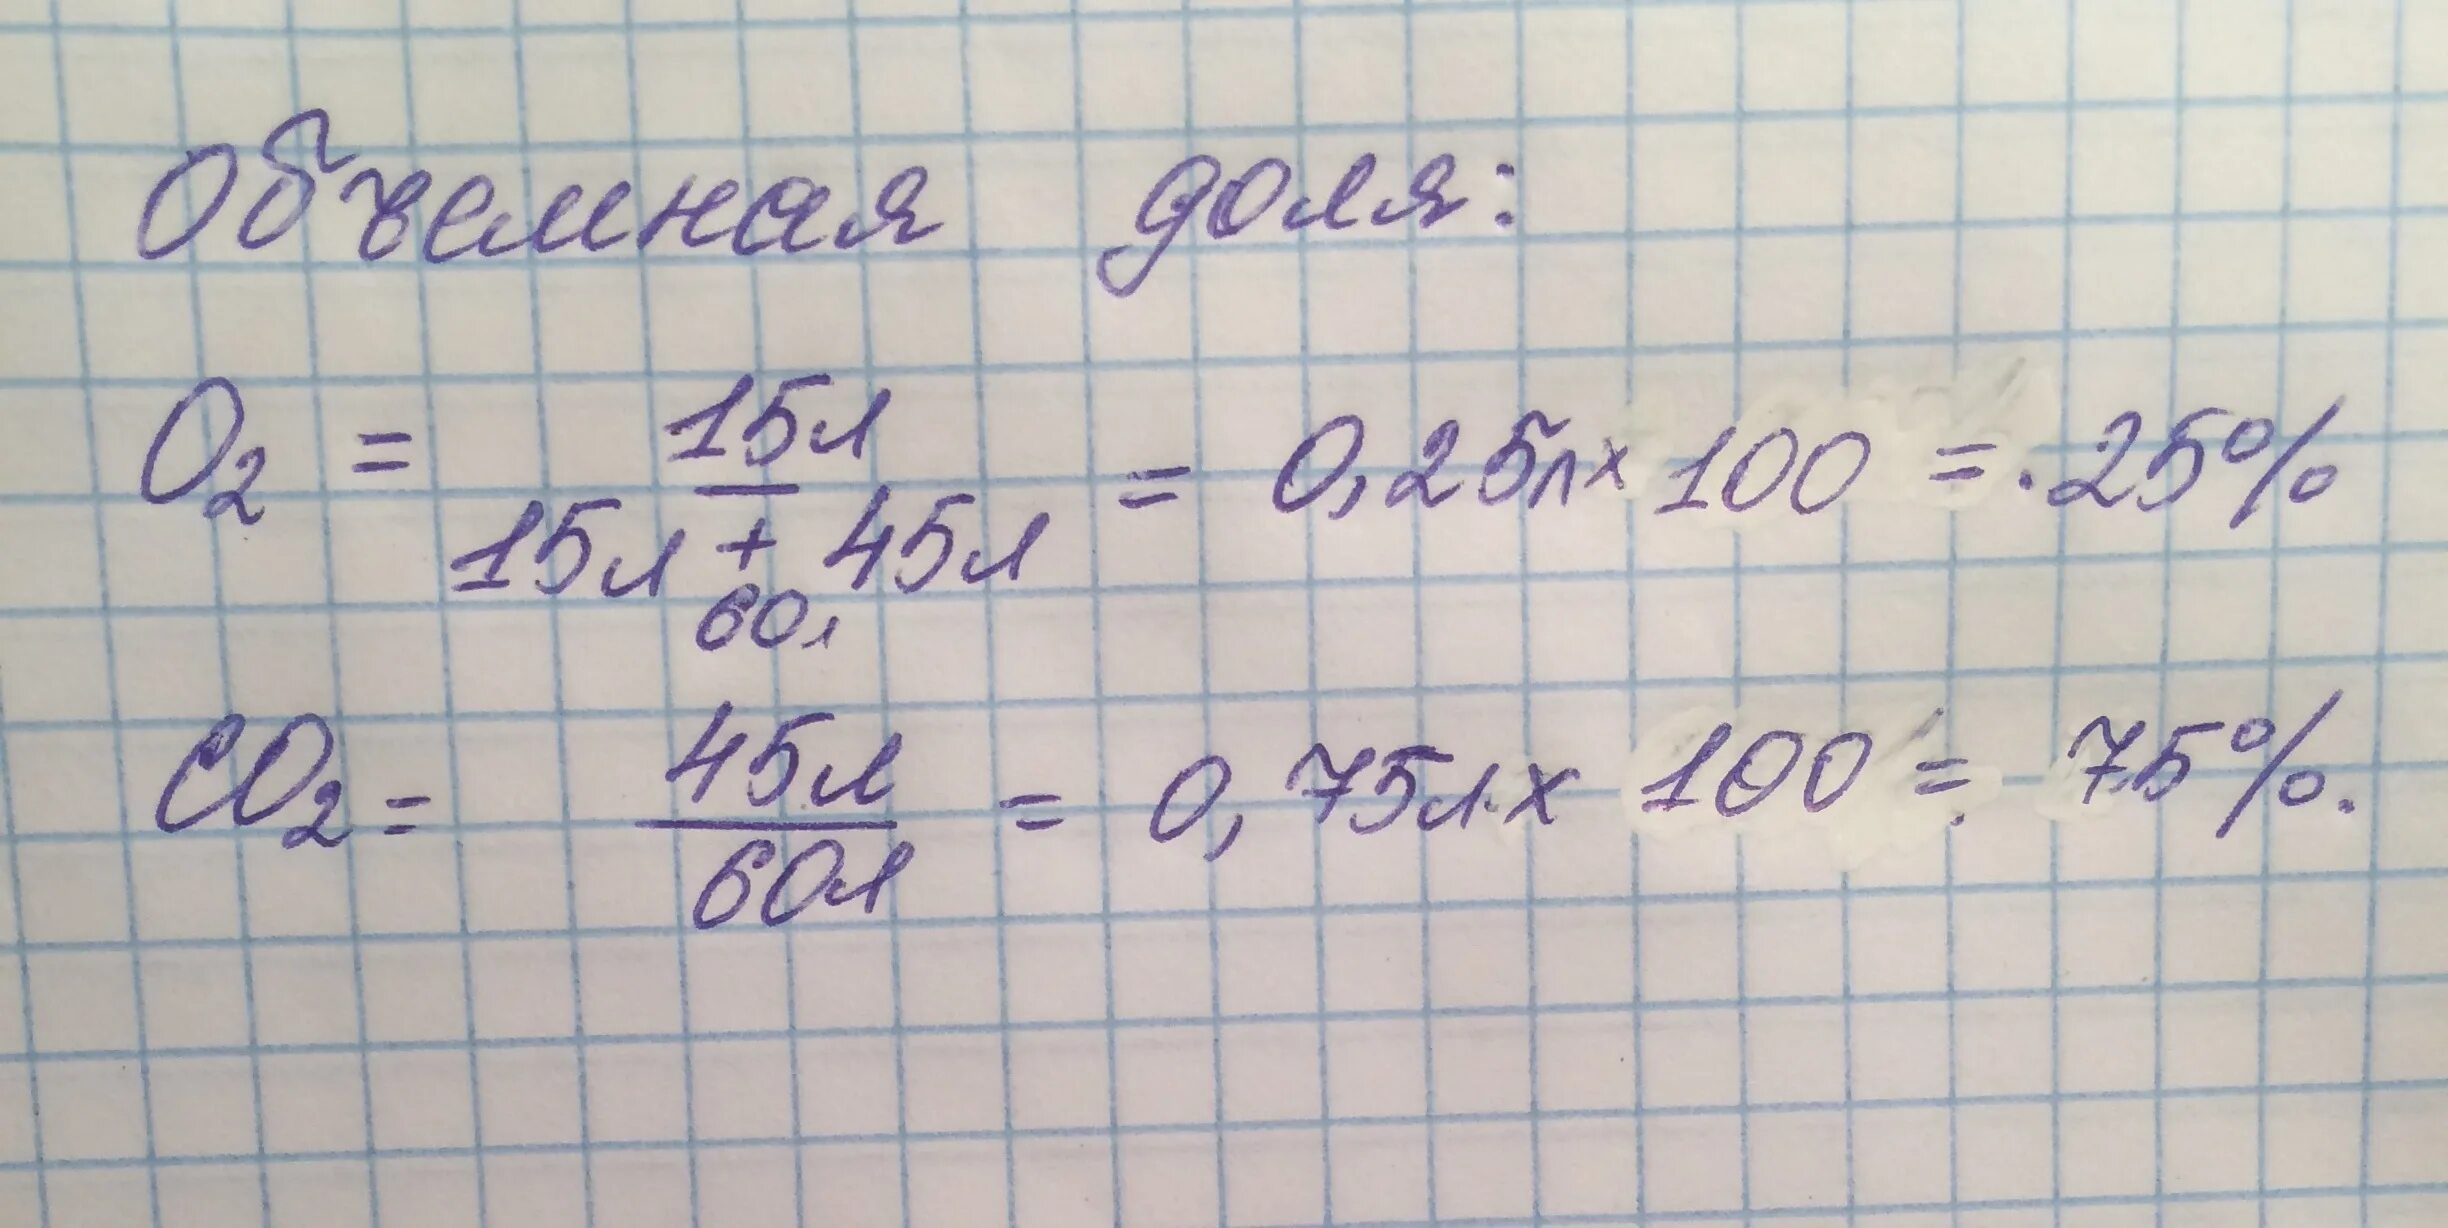 Объемная доля:
O₂ = 15л / 15л + 45л = 0,25л x 100 = 25%
60л
CO₂ = 45л / 60л = 0,75л x 100 = 75%.